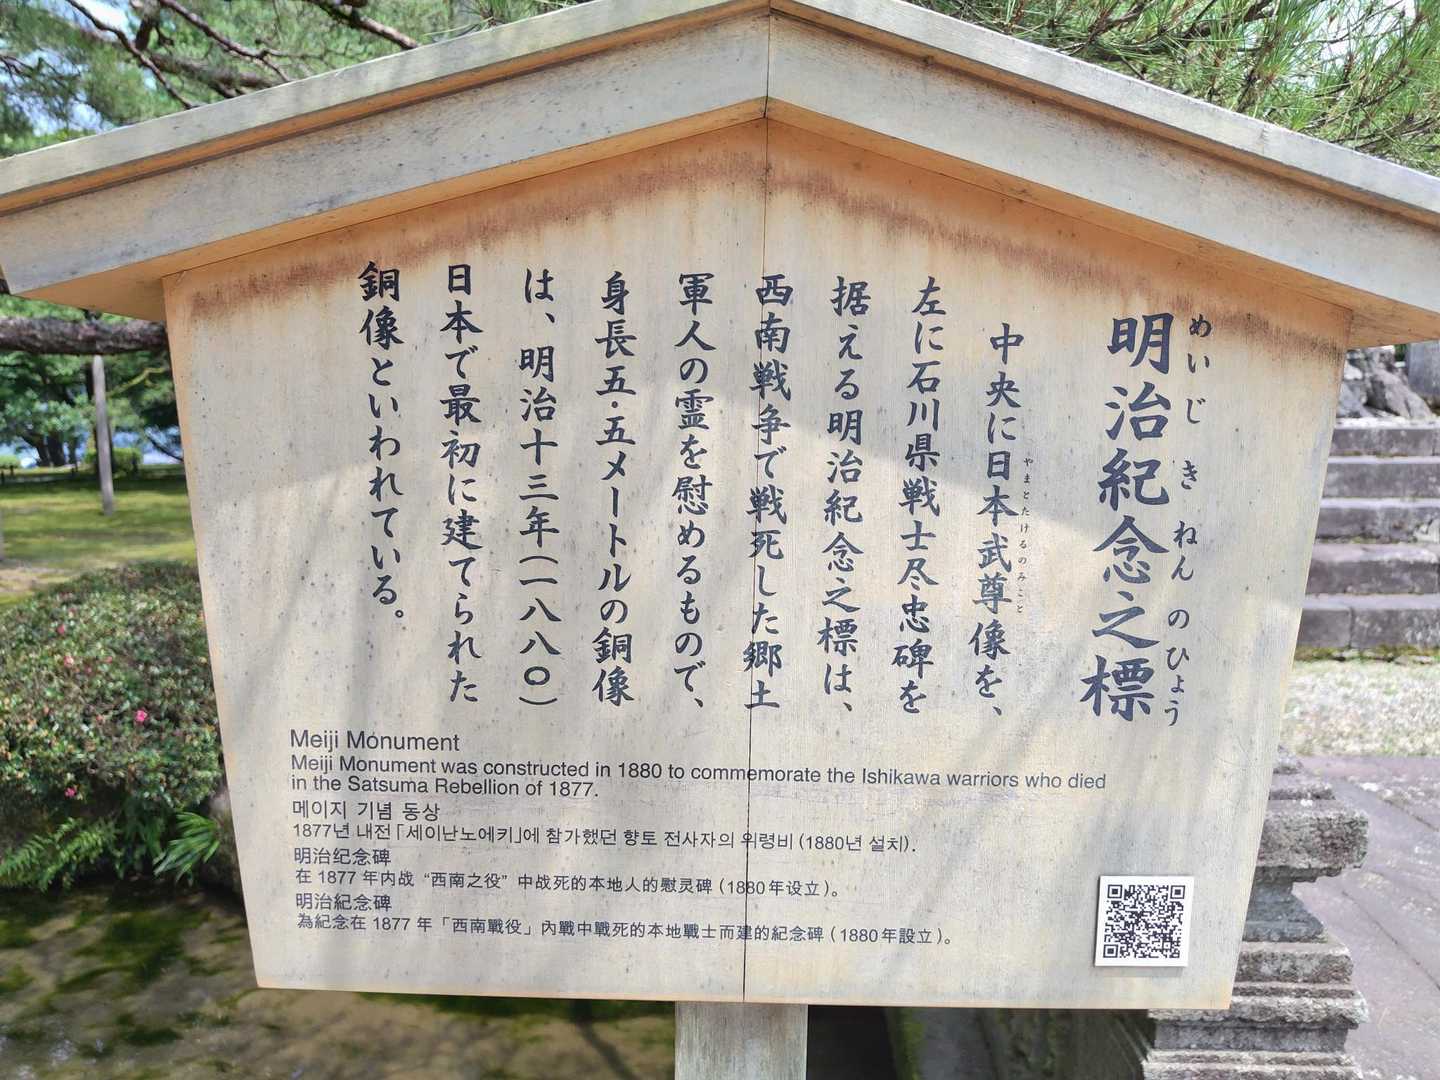 明治紀念之標
めいじきねんのひょう
中央に日本武尊像を、
やまとたけるのみこと
左に石川県戦士尽忠碑を
据える明治紀念之標は、
西南戦争で戦死した郷土
軍人の霊を慰めるもので、
身長五・五メートルの銅像
は、明治十三年(一八八〇)
日本で最初に建てられた
銅像といわれている。
Meiji Monument
Meiji Monument was constructed in 1880 to commemorate the Ishikawa warriors who died
in the Satsuma Rebellion of 1877.
메이지 기념 동상
1877년 내전「세이난노에키」에 참가했던 향토 전사자의 위령비 (1880년 설치).
明治纪念碑
在 1877 年内战 “西南之役” 中战死的本地人的慰灵碑 (1880年设立)。
明治紀念碑
為紀念在 1877 年「西南戰役」內戰中戰死的本地戰士而建的紀念碑 (1880年設立)。